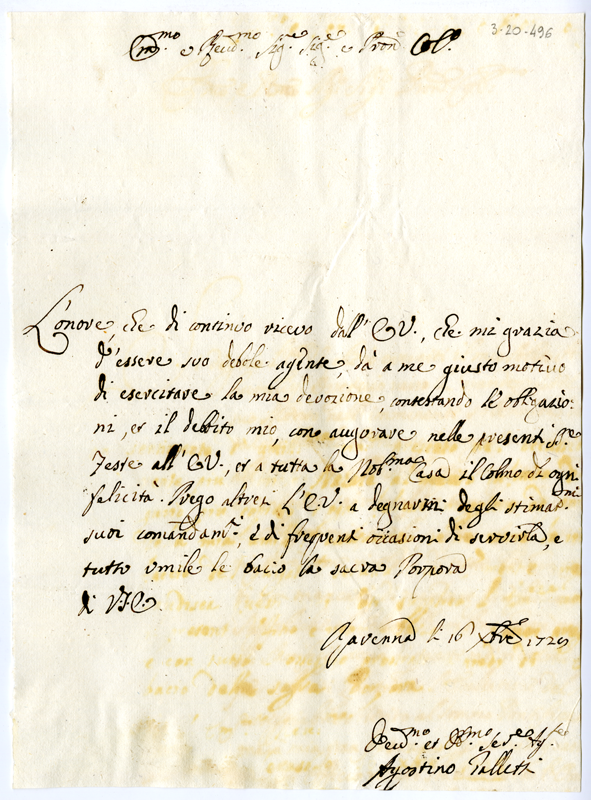 3-20-496
Em.mo e Reud.mo Sig.e Sig.e e Pron. Col.o
L'onore, che di continuo ricevo dall'E.V., che mi grazia
d'essere suo debole agente, dà a me giusto motivo
di esercitare la mia devozione, contestando le obligazio:
ni, et il debbito mio, con augorare nelle presenti S.te
Feste all'E.V., et a tutta la Nob.ma Casa il Colmo di ogni
felicità. Prego altresi L'E.V. a degnarmi degli stimat.mi
suoi comandam.ti, e di frequenti occasioni di servirla, e
tutto umile le bacio la sacra Porpora
di V.E.
Ravenna li 16 Xbre 1729
Deud.mo et Obb.mo Ser.e Ag.te
Agostino Talletti